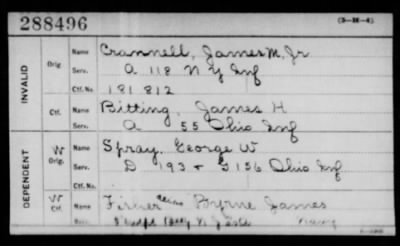 288496
(3-386-4)
INVALID
Orig.
Name Crannell, James M. Jr
Serv. A 118 N Y Inf
Ctf. No. 181 812
Ctf.
Name Bitting, James H
Serv. A 55 Ohio Inf
DEPENDENT
W
Orig.
Name Spray, George W
Serv. D 193 + G 156 Ohio Inf
Ctf. No.
W
Ctf.
Name alias Byrne James
N. J.